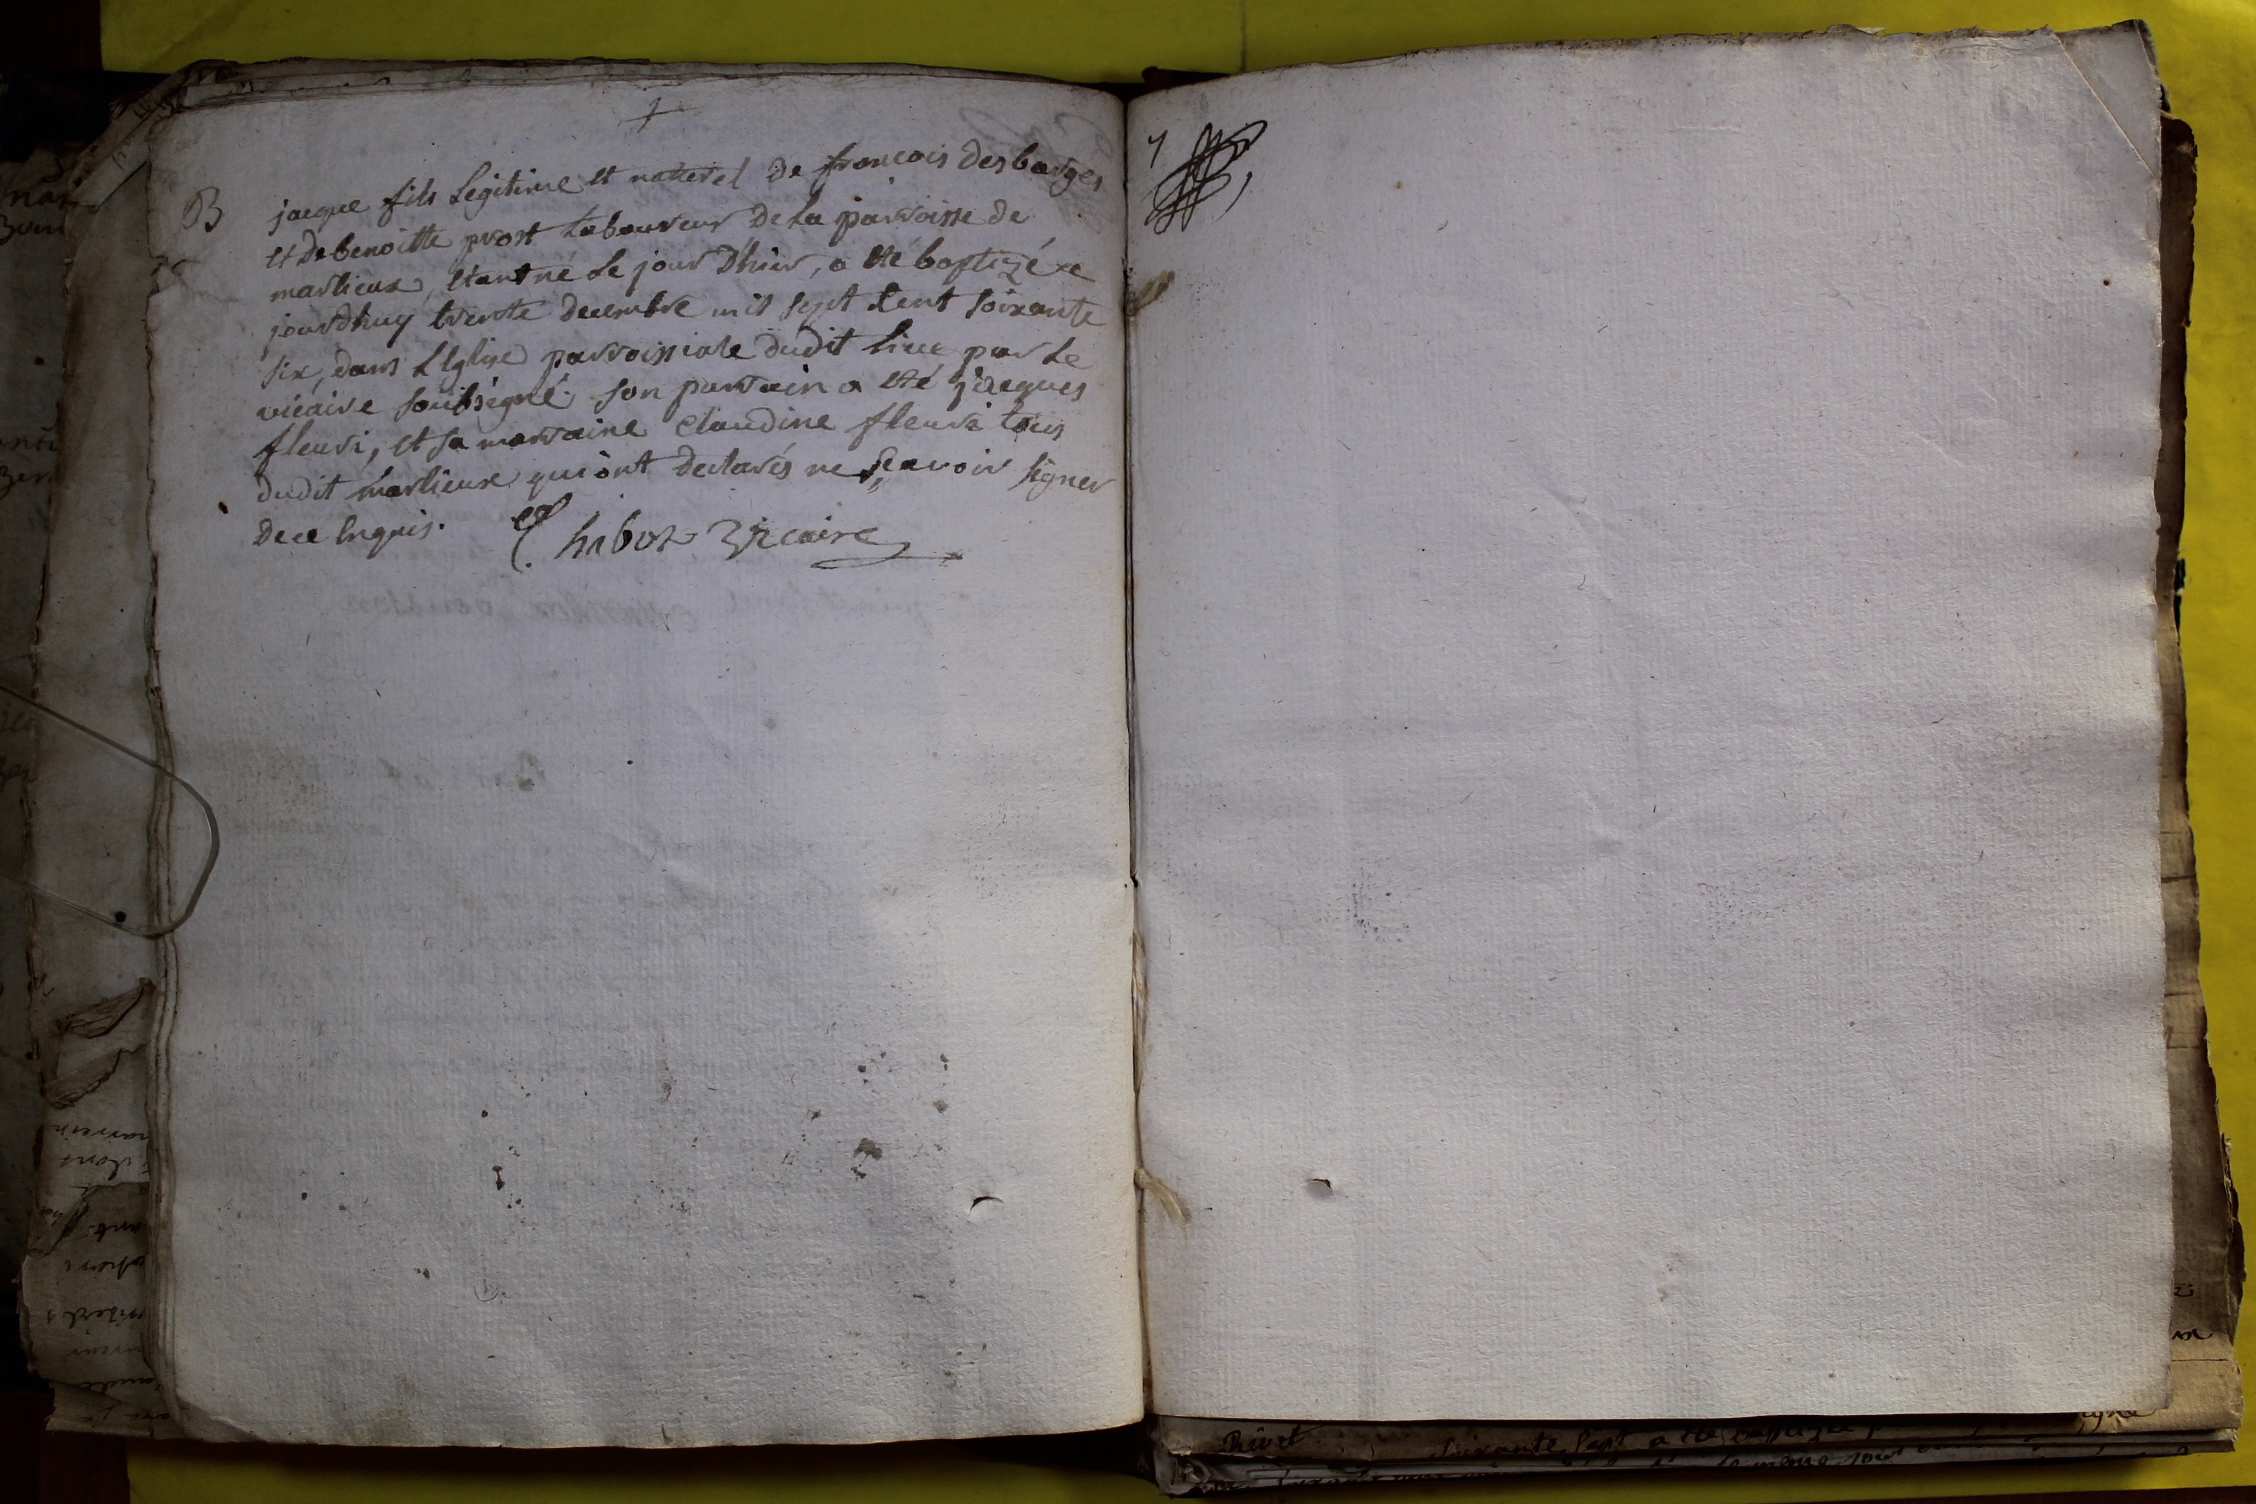 B
jacque fils Legitime et naturel de francois desbarges
et de benoitte prost Laboureur de La parroisse de
marlieux, etant né Le jour d'hier, a été baptizé ce
jourdhuy trente decembre mil sept Cent soixante
six, dans L'Eglise parroissiale dudit Lieu par Le
vicaire soubsigné. son parrain a été jacques
fleuri, et sa marraine Claudine fleuri tous
dudit marlieux qui ont declarés ne sçavoir signer
de ce Enquis. Chabot Vicaire
7
Rivet
soixante sept a été baptizé